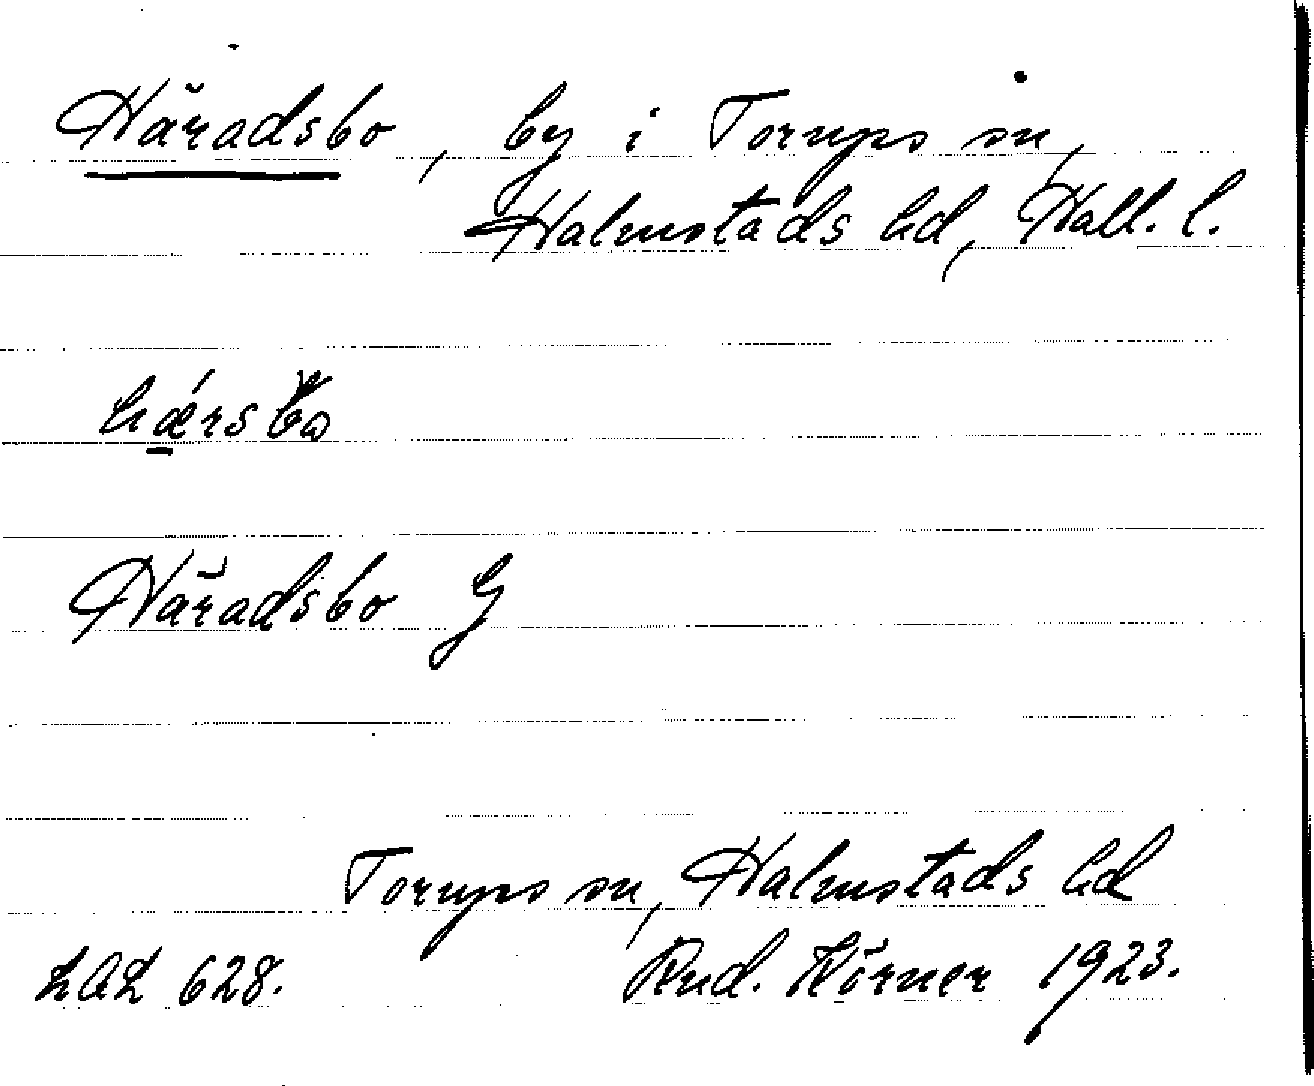 Häradsbo, by i Torups sn,
Halmstads hd, Hall. l.
Häradsbo G
Torups sn, Halmstads hd
LAL 628.
Rud. Körner 1923.